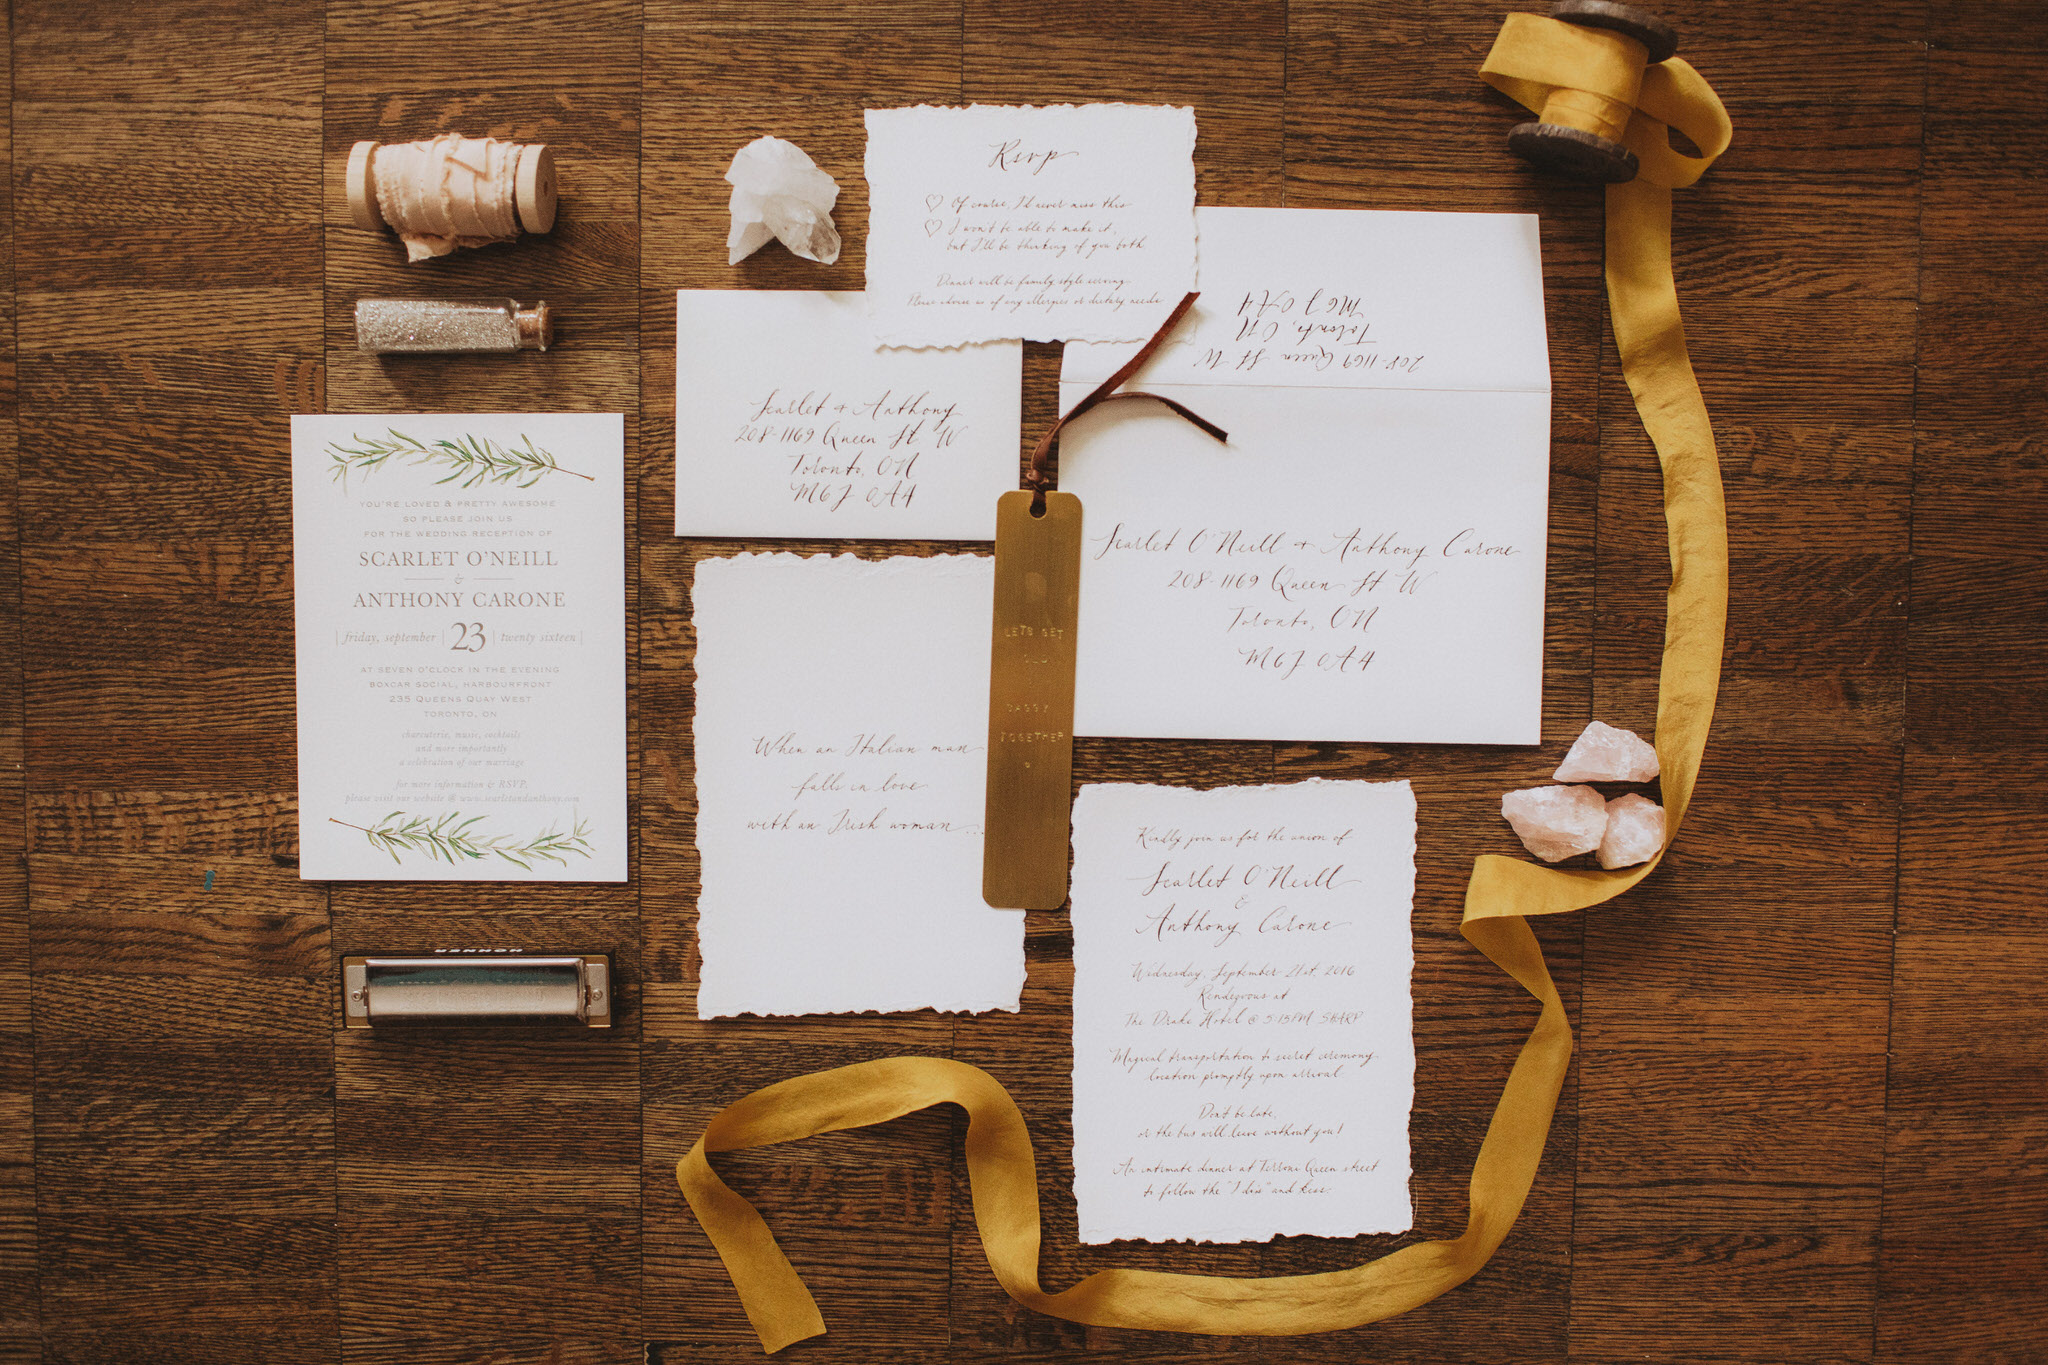 YOU'RE LOVED & PRETTY AWESOME
SO PLEASE JOIN US
FOR THE WEDDING RECEPTION OF
SCARLET O'NEILL
&
ANTHONY CARONE
friday, september | 23 | twenty sixteen
AT SEVEN O'CLOCK IN THE EVENING
BOXCAR SOCIAL, HARBOURFRONT
235 QUEENS QUAY WEST
TORONTO, ON
charcuterie, music, cocktails
and more importantly
a celebration of our marriage
for more information & RSVP,
please visit our website @ www.scarletandanthony.com
HOHNER
Rsvp
Of course, I'd never miss this
I won't be able to make it,
but I'll be thinking of you both
Dinner will be family style serving
Please advise us of any allergies or dietary needs
Scarlet + Anthony
208-1169 Queen St W
Toronto, ON
M6J 0A4
208-1169 Queen St W
Toronto, ON
M6J 0A4
Scarlet O'Neill + Anthony Carone
208-1169 Queen St W
Toronto, ON
M6J 0A4
LETS GET
OLD
TOGETHER
When an Italian man
falls in love
with an Irish woman...
Kindly join us for the union of
Scarlet O'Neill
&
Anthony Carone
Wednesday, September 21st, 2016
Rendezvous at
The Drake Hotel @ 5:15PM SHARP
Magical transportation to secret ceremony
location promptly upon arrival
Don't be late,
or the bus will leave without you!
An intimate dinner at Terroni Queen street
to follow the "I dos" and kiss.